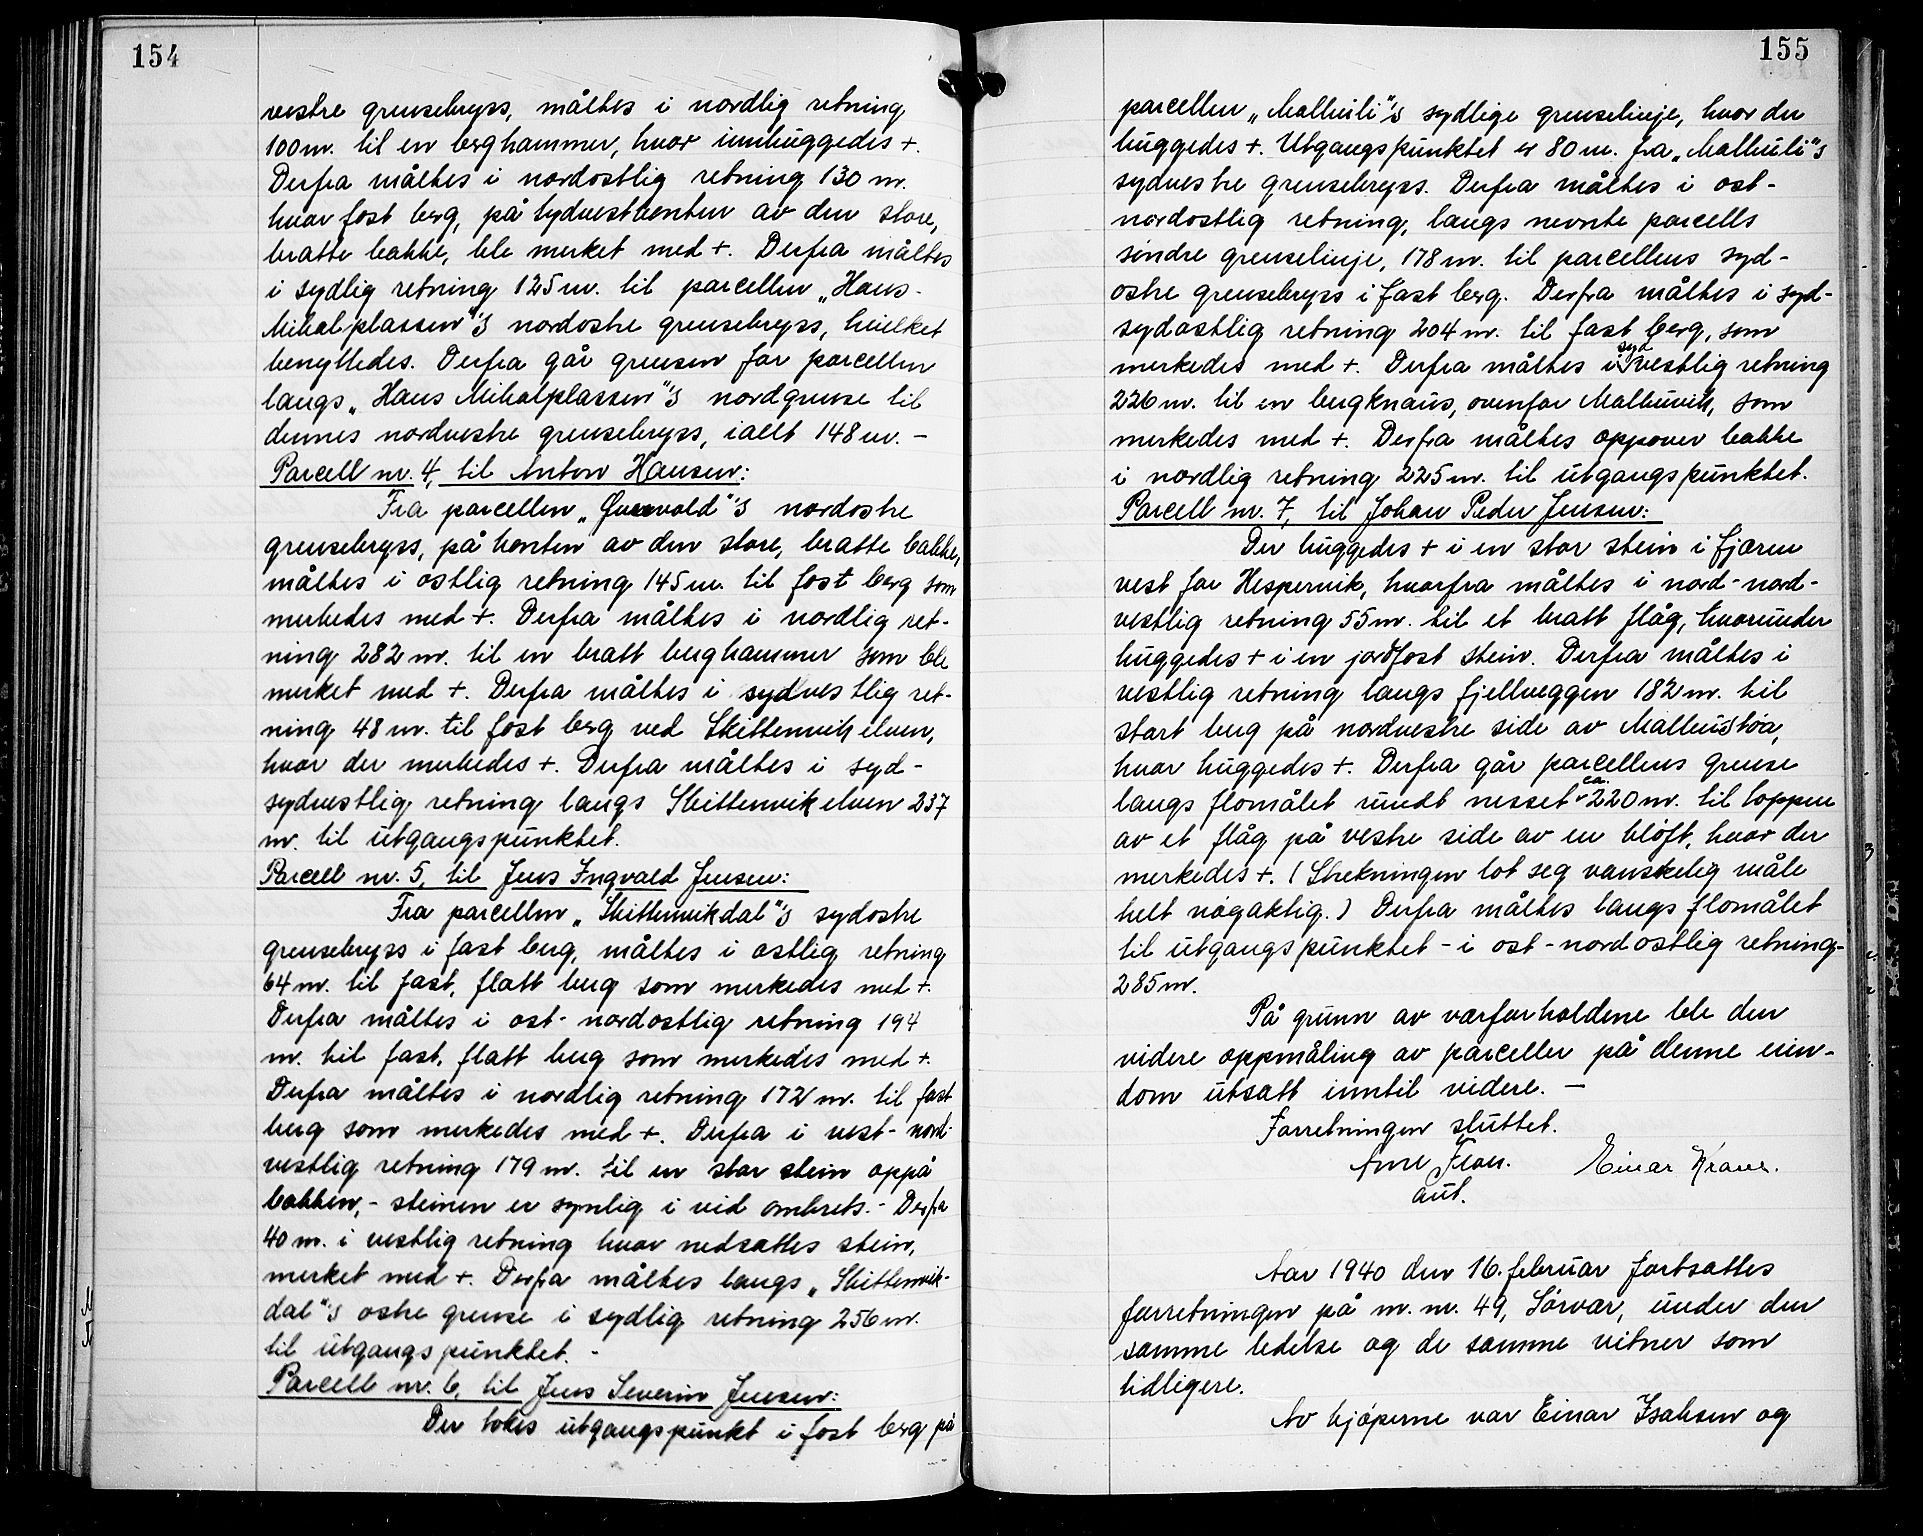 154
vestre grensekryss, måltes i nordlig retning
100 m. til en berghammer, hvor innhuggedes +.
Derfra måltes i nordostlig retning 130 m.
hvor fast berg, på sydvestkanten av den store,
bratte bakke, ble merket med +. Derfra måltes
i sydlig retning 125 m. til parcellen „Hans-
Mikalplassen"s nordostre grensekryss, hvilket
benyttedes. Derfra går grensen for parcellen
langs „Hans Mikalplassen"s nordgrense til
dennes nordvestre grensekryss, iallt 148 m. –
Parcell nr. 4, til Anton Hansen:
Fra parcellen „Grønvold"s nordostre
grensekryss, på kanten av den store, bratte bakke,
måltes i ostlig retning 145 m. til fast berg som
merkedes med +. Derfra måltes i nordlig ret-
ning 282 m. til en bratt berghammer som ble
merket med +. Derfra måltes i sydvestlig ret-
ning 48 m. til fast berg ved Skittenvikelven,
hvor der merkedes +. Derfra måltes i syd-
sydvestlig retning langs Skittenvikelven 237
m. til utgangspunktet.
Parcell nr. 5, til Jens Ingvald Jensen:
Fra parcellen „Skittenvikdal"s sydostre
grensekryss i fast berg, måltes i ostlig retning
64 m. til fast, flatt berg som merkedes med +.
Derfra måltes i ost-nordostlig retning 194
m. til fast, flatt berg som merkedes med +.
Derfra måltes i nordlig retning 172 m. til fast
berg som merkedes med +. Derfra i vest-nord-
vestlig retning 179 m. til en stor stein oppå
bakken, – steinen er synlig i vid omkrets. – Derfra
40 m. i vestlig retning hvor nedsattes stein,
merket med +. Derfra måltes langs „Skittenvik-
dal"s ostre grense i sydlig retning 256 m.
til utgangspunktet. –
Parcell nr. 6, til Jens Severin Jensen:
Der tokes utgangspunkt i fast berg på
155
parcellen „Malheili"s sydlige grenselinje, hvor der
huggedes +. Utgangspunktet er 80 m. fra „Malheili"s
sydvestre grensekryss. Derfra måltes i ost-
nordostlig retning, langs nevnte parcells
søndre grenselinje, 178 m. til parcellens syd-
ostre grensekryss i fast berg. Derfra måltes i syd-
sydostlig retning 204 m. til fast berg, som
merkedes med +. Derfra måltes i sydvestlig retning
226 m. til en bergknaus, ovenfor Malheuvik, som
merkedes med +. Derfra måltes oppover bakke
i nordlig retning 225 m. til utgangspunktet.
Parcell nr. 7, til Johan Peder Jensen:
Der huggedes + i en stor stein i fjæren
vest for Hespervik, hvorfra måltes i nord-nord-
vestlig retning 55 m. til et bratt flåg, hvorunder
huggedes + i en jordfast stein. Derfra måltes i
vestlig retning langs fjellveggen 182 m. til
stort berg på nordvestre side av Malheustøa,
hvor huggedes +. Derfra går parcellens grense
langs flomålet rundt nesset ca. 220 m. til toppen
av et flåg på vestre side av en kløft, hvor der
merkedes +. (Strekningen lot seg vanskelig måle
helt nøgaktig.) Derfra måltes langs flomålet
til utgangspunktet – i ost-nordostlig retning –
285 m.
På grunn av værforholdene ble den
videre oppmåling av parceller på denne eien-
dom utsatt inntil videre. –
Forretningen sluttet.
Arne Flom. Einar Krane.
aut.
Aar 1940 den 16. februar fortsattes
forretningen på m. nr. 49, Sørvær, under den
samme ledelse og de samme vitner som
tidligere.
Av kjøperne var Einar Isaksen og